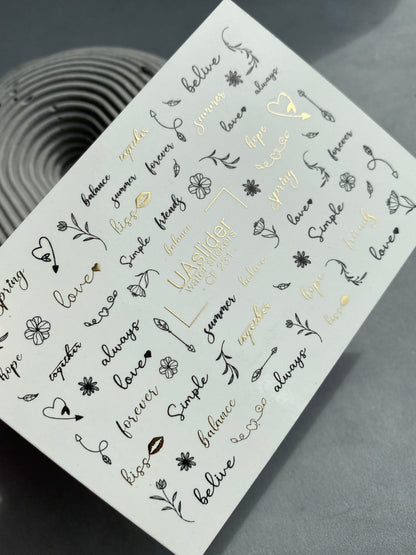 belive
always
summer
love
together
forever
hope
forever
balance
summer
kiss
friends
spring
Simple
balance
love
Simple
friends
love
UAslider
water stickers
spring
love
always
summer
balance
hope
kiss
hope
together
love
Simple
together
always
forever
balance
kiss
belive